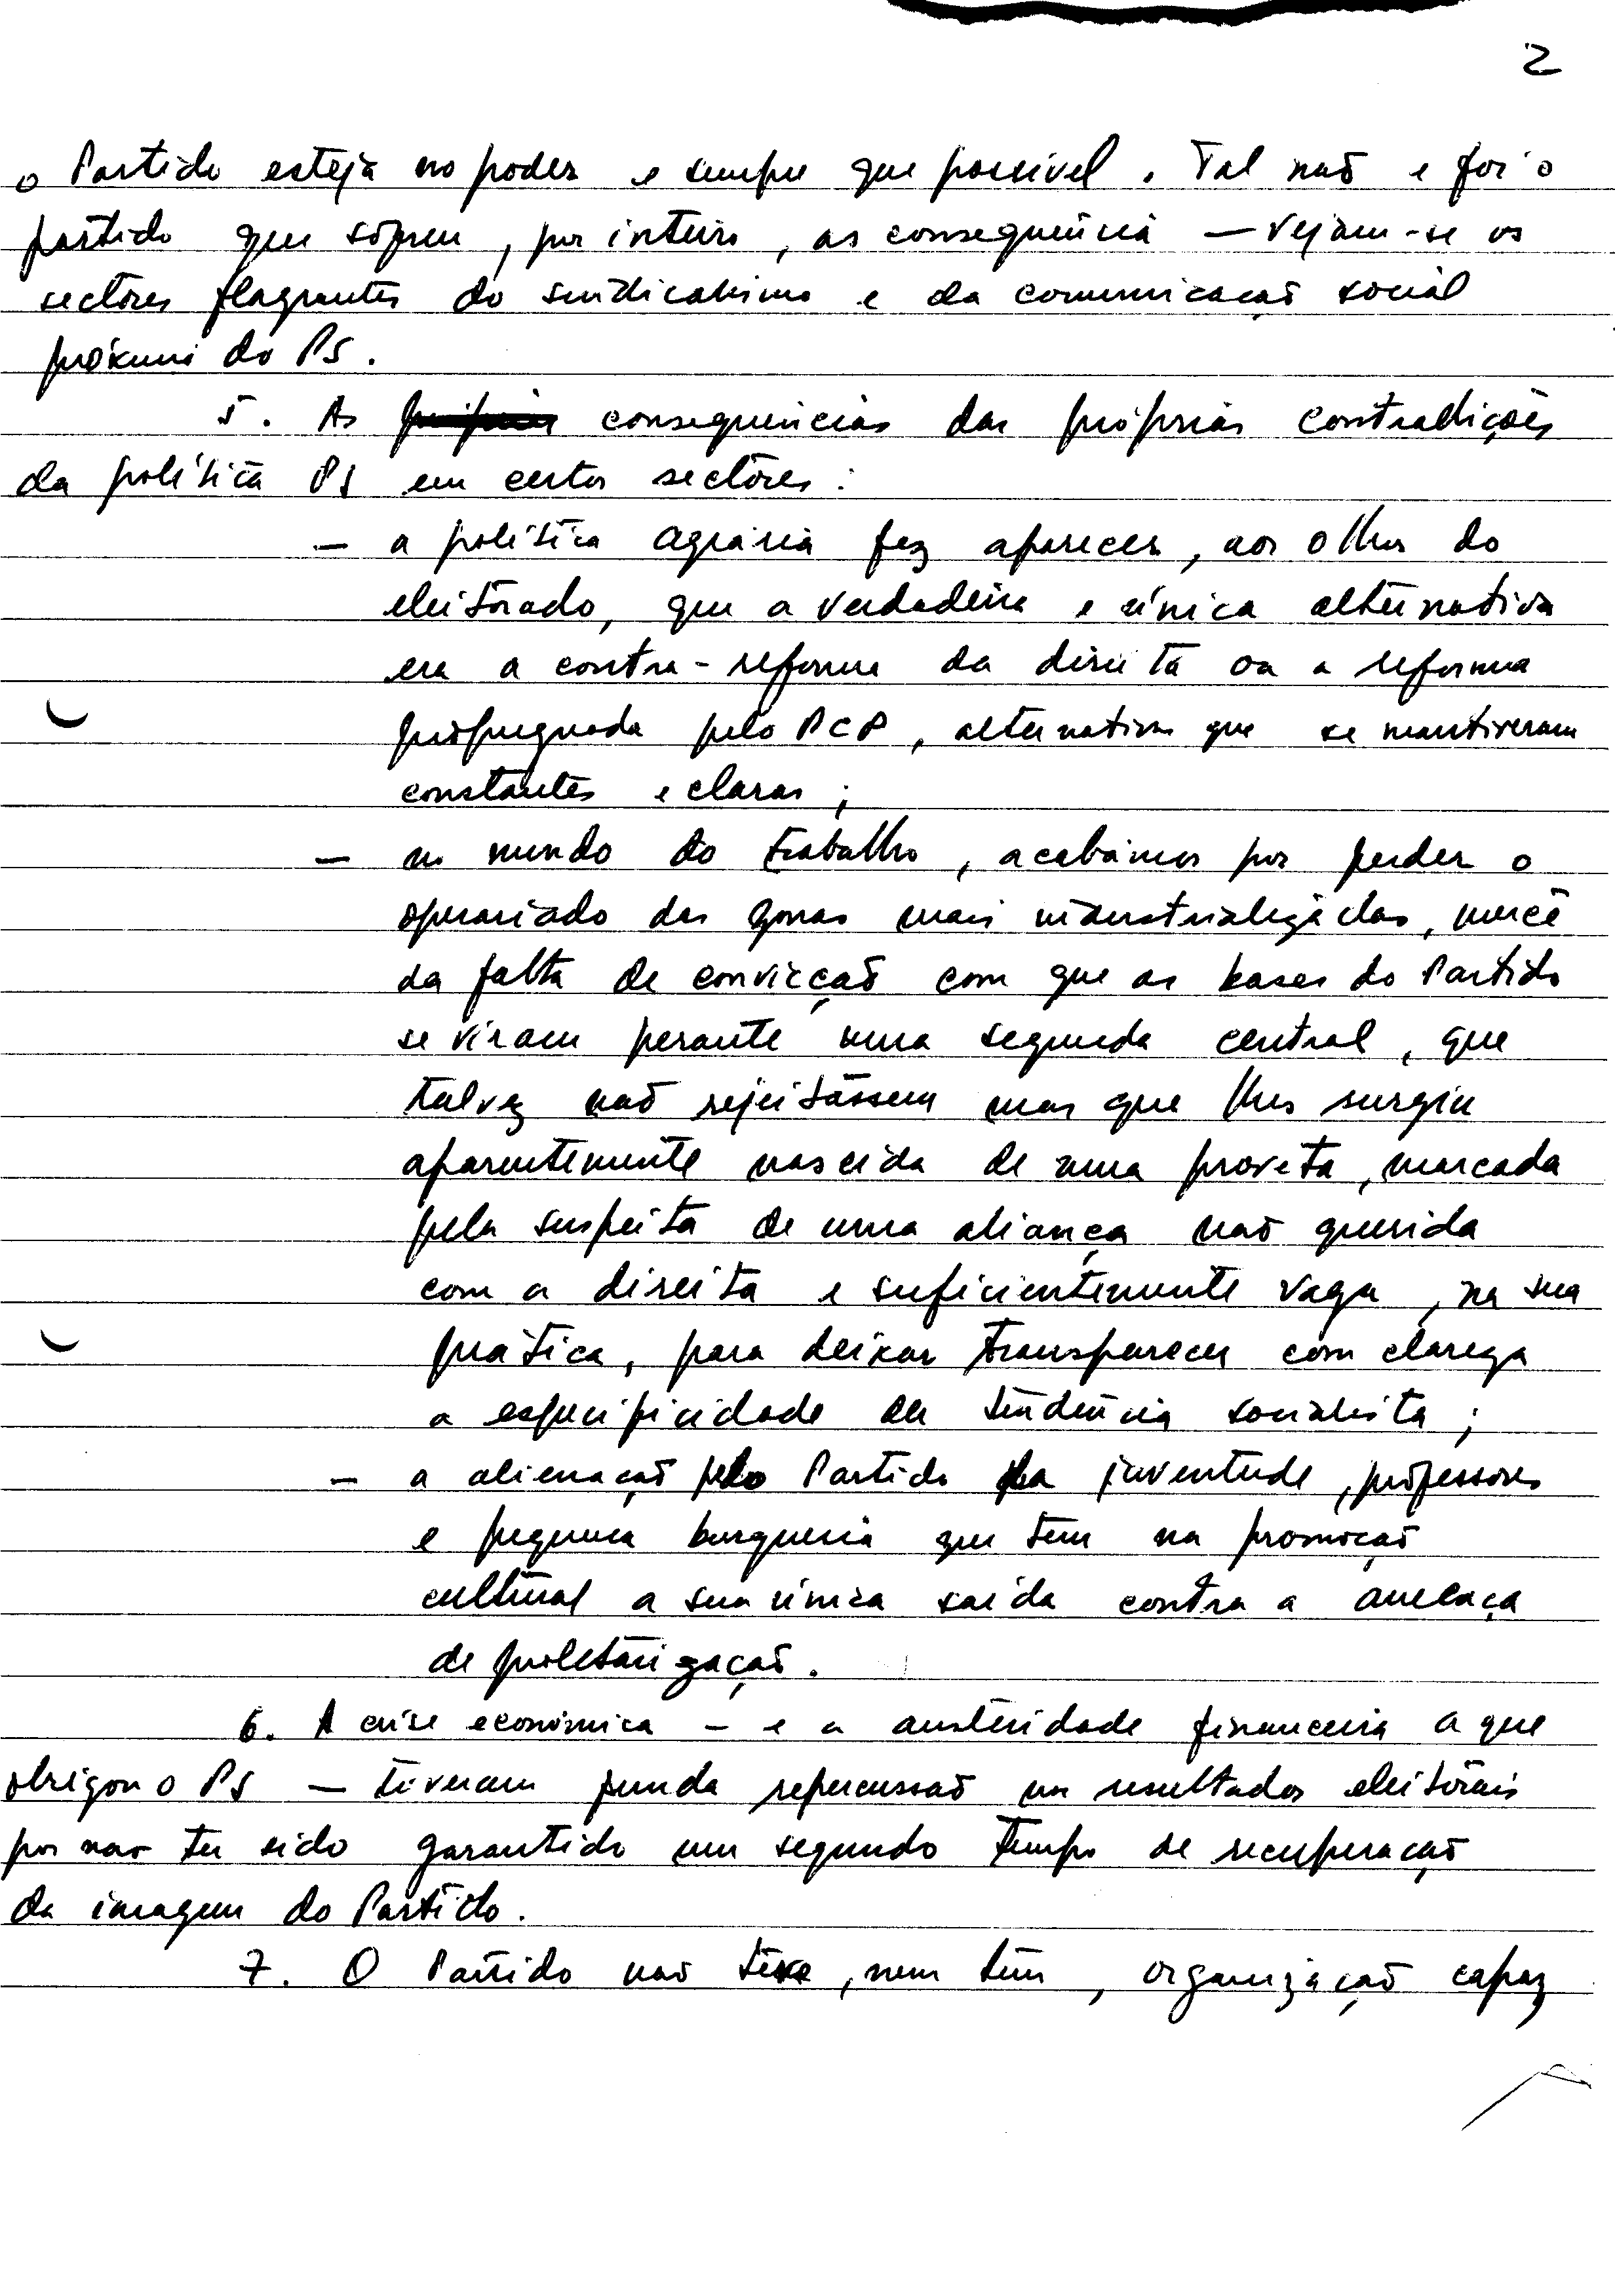 2
o Partido esteja no poder e sempre que possível. Tal não e foi o
partido que sofreu, por inteiro, as consequência — vejam-se os
sectores flagrantes do sindicalismo e da comunicação social
próximo do PS.
5. As consequências das próprias contradições
da política PS em certos sectores:
— a política agrária fez aparecer, aos olhos do
eleitorado, que a verdadeira e única alternativa
era a contra-reforma da direita ou a reforma
propugnada pelo PCP, alternativas que se mantiveram
constantes e claras;
— no mundo do trabalho, acabámos por perder o
operariado das zonas mais industrializadas, mercê
da falta de convicção com que as bases do Partido
se viram perante uma segunda central, que
talvez não rejeitassem mas que lhes surgiu
aparentemente nascida de uma proveta, marcada
pela suspeita de uma aliança não querida
com a direita e suficientemente vaga, na sua
prática, para deixar transparecer com clareza
a especificidade da tendência socialista;
— a alienação pelo Partido da juventude, professores
e pequena burguesia que tem na promoção
cultural a sua única saída contra a ameaça
de proletarização.
6. A crise económica — e a austeridade financeira a que
obrigou o PS — tiveram funda repercussão nos resultados eleitorais
por não ter sido garantido um segundo tempo de recuperação
da imagem do Partido.
7. O Partido não teve, nem tem, organização capaz